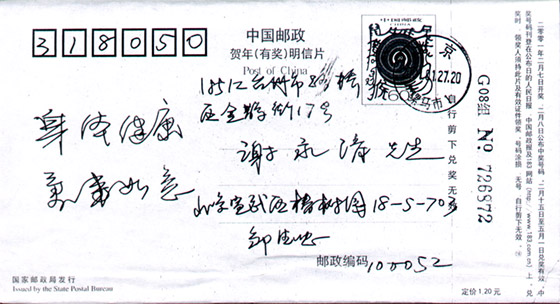 318050
中国邮政
贺年(有奖)明信片
Post of China
京
1.27.20
骡马市
浙江台州市路桥
区金路街17号
谢永 先生
身体健康
万事如意
北京宣武区椿树园18-5-703
邹
邮政编码 100052
G08组 No 726872
自行剪下兑奖无
国家邮政局发行
Issued by the State Postal Bureau
定价1.20元
二零零一年二月七日开奖,二月八日公布中奖号码,二月十五日至五月一日兑奖有效,中
奖号码刊登在公布日的人民日报、中国邮政报及183网站(http://www.183.com.cn)上,兑
奖时,领奖人须持此片及有效证件领奖,号码涂损无号,自行剪下无效。